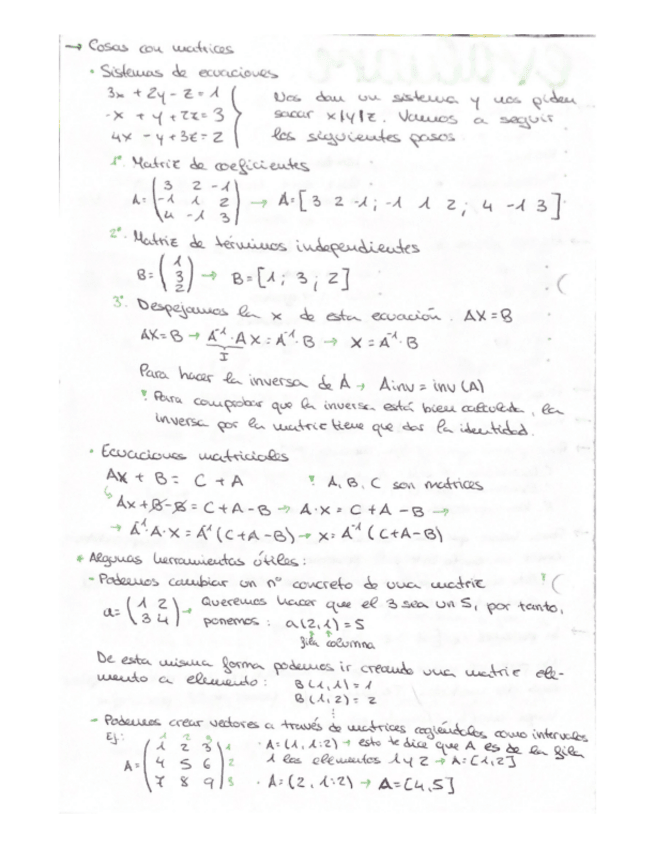 → Cosas con matrices
· Sistemas de ecuaciones
3x + 2y - z = 1
-x + y + 2z = 3
4x - y + 3z = 2
Nos dan un sistema y nos piden
sacar x/y/z. Vamos a seguir
los siguientes pasos
1º. Matriz de coeficientes
A = (3 2 -1; -1 1 2; 4 -1 3) → A = [3 2 -1; -1 1 2; 4 -1 3]
2º. Matriz de términos independientes
B = (1 3 2) → B = [1; 3; 2]
3º. Despejamos la x de esta ecuación. AX = B
AX = B → A⁻¹·A X = A⁻¹·B → X = A⁻¹·B
I
Para hacer la inversa de A → Ainv = inv (A)
! Para comprobar que la inversa está bien calculada, la
inversa por la matriz tiene que dar la identidad.
· Ecuaciones matriciales
AX + B = C + A ! A, B, C son matrices
↳ AX + B - B = C + A - B → A·X = C + A - B →
→ A⁻¹·A·X = A⁻¹ (C+A-B) → X = A⁻¹ (C+A-B)
* Algunas herramientas útiles:
- Podemos cambiar un nº concreto de una matriz !
a = (1 2; 3 4) → Queremos hacer que el 3 sea un 5, por tanto,
ponemos: a(2,1) = 5
fila columna
De esta misma forma podemos ir creando una matriz ele-
mento a elemento: B(1,1) = 1
B(1,2) = 2
⋮
- Podemos crear vectores a través de matrices cogiéndolos como intervalos
Ej: 1 2 3
A = (1 2 3; 4 5 6; 7 8 9) 1 2 3
· A = (1, 1:2) → esto te dice que A es de la fila
1 los elementos 1 y 2 → A = [1,2]
· A = (2, 1:2) → A = [4,5]